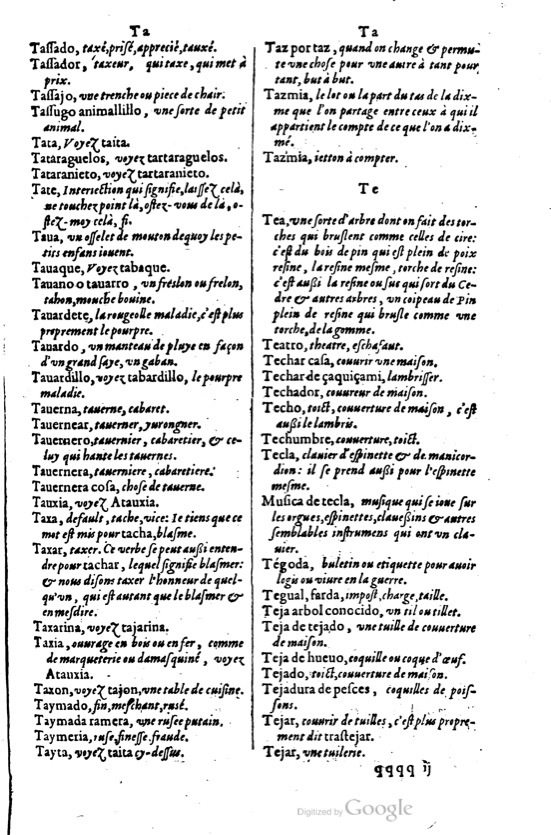 Ta
Taſſado, taxé, priſé, apprecié, tauxé.
Taſſador, taxeur, qui taxe, qui met à
prix.
Taſſajo, vne trenche ou piece de chair.
Taſſugo animallillo, vne ſorte de petit
animal.
Tata, Voyez taita.
Tataraguelos, voyez tartaraguelos.
Tataranieto, voyez tartaranieto.
Tate, Interiection qui ſignifie, laiſſez celà,
ne touchez point là, oſtez-vous de là, o-
ſtez-moy celà, fi.
Taua, vn oſſelet de mouton dequoy les pe-
tits enfans iouent.
Tauaque, Voyez tabaque.
Tauano o tauarro, vn freslon ou frelon,
tahon, mouche bouine.
Tauardete, la rougeolle maladie, c'eſt plus
proprement le pourpre.
Tauardo, vn manteau de pluye en façon
d'vn grand ſaye, vn gaban.
Tauardillo, voyez tabardillo, le pourpre
maladie.
Tauerna, tauerne, cabaret.
Tauernear, tauerner, yurongner.
Tauernero, tauernier, cabaretier, & ce-
luy qui hante les tauernes.
Tauernera, tauerniere, cabaretiere.
Tauernera coſa, choſe de tauerne.
Tauxia, voyez Atauxia.
Taxa, default, tache, vice: Ie tiens que ce
mot eſt mis pour tacha, blaſme.
Taxar, taxer. Ce verbe ſe peut außi enten-
dre pour tachar, lequel ſignifie blaſmer:
& nous diſons taxer l'honneur de quel-
qu'vn, qui eſt autant que le blaſmer &
en meſdire.
Taxarina, voyez tajarina.
Taxia, ouurage en bois ou en fer, comme
de marqueterie ou damaſquiné, voyez
Atauxia.
Taxon, voyez tajon, vne table de cuiſine.
Taymado, fin, meſchant, ruſé.
Taymada ramera, vne ruſee putain.
Taymeria, ruſe, fineſſe, fraude.
Tayta, voyez taita cy-deſſus.
Ta
Taz por taz, quand on change & permu-
te vne choſe pour vne autre à tant pour
tant, but à but.
Tazmia, le lot ou la part du tas de la dix-
me que l'on partage entre ceux à qui il
appartient le compte de ce que l'on a dix-
mé.
Tazmia, ietton à compter.
Te
Tea, vne ſorte d'arbre dont on fait des tor-
ches qui bruſlent comme celles de cire:
c'eſt du bois de pin qui eſt plein de poix
reſine, la reſine meſme, torche de reſine:
c'eſt außi la reſine ou ſuc qui ſort du Ce-
dre & autres arbres, vn coipeau de Pin
plein de reſine qui bruſle comme vne
torche, de la gomme.
Teatro, theatre, eſchafaut.
Techar caſa, couurir vne maiſon.
Techar de çaquiçami, lambriſſer.
Techador, couureur de maiſon.
Techo, toict, couuerture de maiſon, c'eſt
außi le lambris.
Techumbre, couuerture, toict.
Tecla, clauier d'eſpinette & de manicor-
dion: il ſe prend außi pour l'eſpinette
meſme.
Muſica de tecla, muſique qui ſe ioue ſur
les orgues, eſpinettes, claueßins & autres
ſemblables inſtrumens qui ont vn cla-
uier.
Tégoda, buletin ou etiquette pour auoir
logis ou viure en la guerre.
Tegual, farda, impoſt, charge, taille.
Teja arbol conocido, vn til ou tillet.
Teja de tejado, vne tuille de couuerture
de maiſon.
Teja de hueuo, coquille ou coque d'œuf.
Tejado, toict, couuerture de maiſon.
Tejadura de peſces, coquilles de poiſ-
ſons.
Tejar, couurir de tuilles, c'eſt plus propre-
ment dit traſtejar.
Tejar, vne tuilerie.
qqqq ij
Digitized by Google